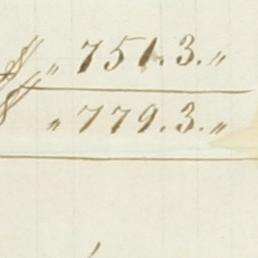 $ „ 751.3.„
$ „ 779.3.„